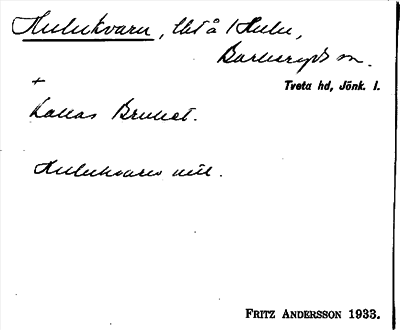 Hulukvarn, Ut å Hulu,
Barkeryds sn.
Tveta hd, Jönk. l.
+
kallas Bruket.
Hulukvarn
FRITZ ANDERSSON 1933.